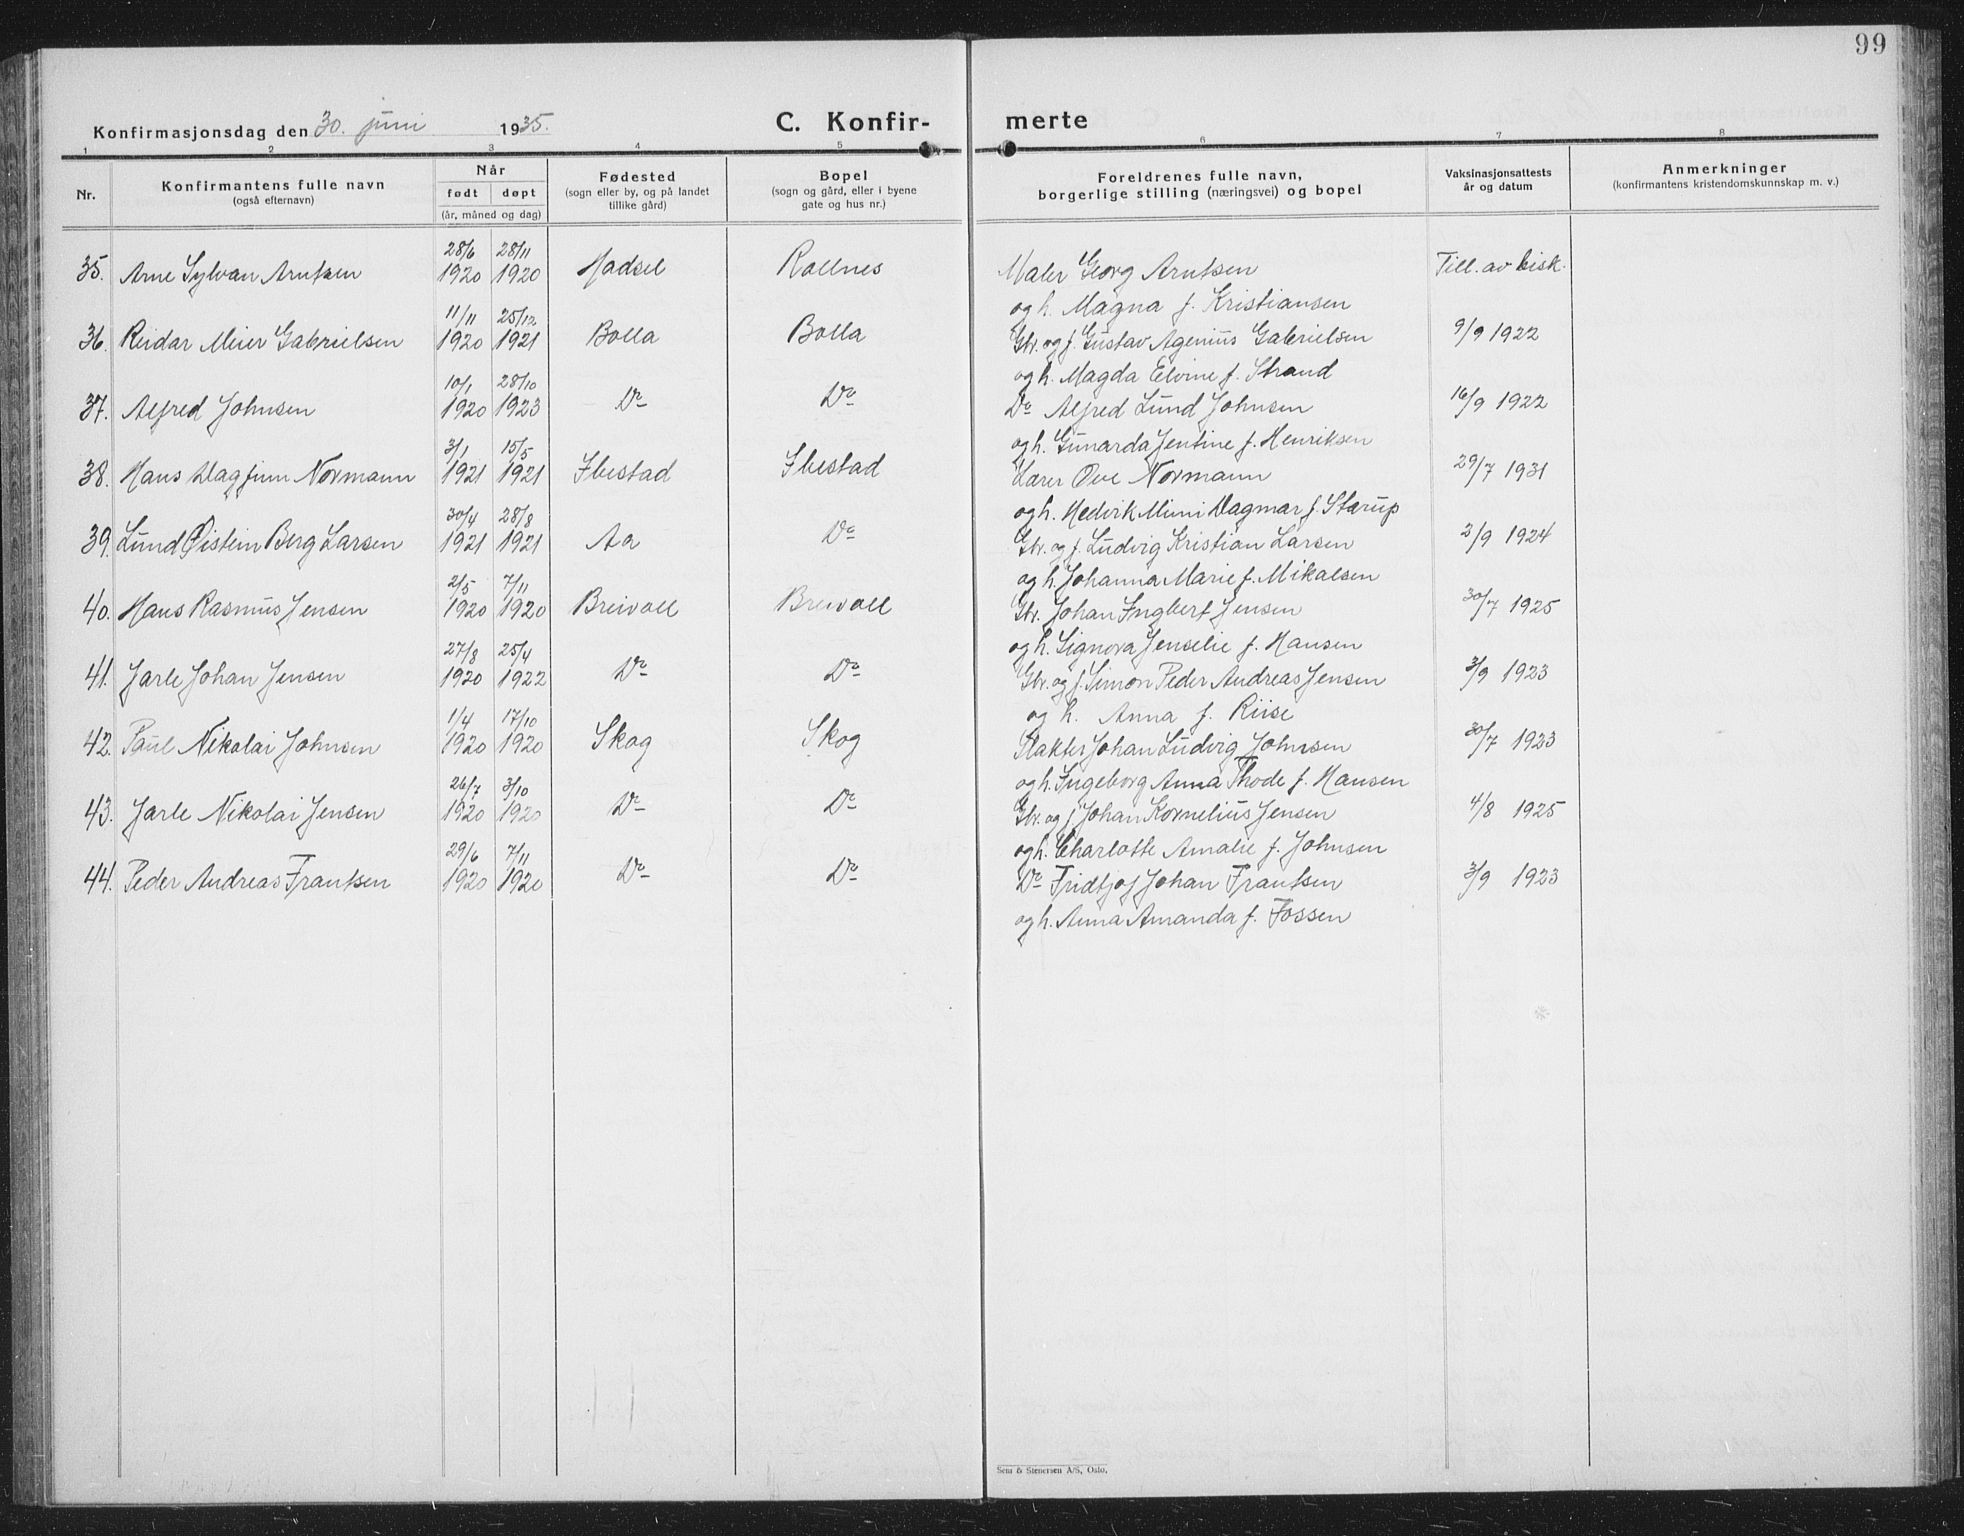 99
Konfirmasjonsdag den 30. juni 1935.
C. Konfir-
merte
1 2 3 4 5 6 7 8
Nr.
Konfirmantens fulle navn
(også efternavn)
Når
født døpt
(år, måned og dag)
Fødested
(sogn eller by, og på landet
tillike gård)
Bopel
(sogn og gård, eller i byene
gate og hus nr.)
Foreldrenes fulle navn,
borgerlige stilling (næringsvei) og bopel
Vaksinasjonsattests
år og datum
Anmerkninger
(konfirmantens kristendomskunnskap m. v.)
35. Arne Sylvan Arntsen 28/6 1920 28/11 1920 Hadsel Rollnes Maler Georg Arntsen Till. av bisk.
og h. Magna f. Kristiansen
36. Reidar Meier Gabrielsen 11/11 1920 25/12 1921 Bolla Bolla Gbr. og f. Gustav Agenius Gabrielsen 9/9 1922
og h. Magda Elvine f. Strand
37. Alfred Johnsen 10/1 1920 28/10 1923 Do Do Do Alfred Lund Johnsen 16/9 1922
og h. Gunarda Jentine f. Henriksen
38. Hans Dagfinn Normann 3/1 1921 15/5 1921 Ibestad Ibestad Lærer Ove Normann 29/7 1931
og h. Hedvik Mimi Dagmar f. Starup
39. Lund Øistein Berg Larsen 30/4 1921 28/8 1921 Aa Do Gbr. og f. Ludvig Kristian Larsen 2/9 1924
og h. Johanna Marie f. Mikalsen
40. Hans Rasmus Jensen 2/5 1920 7/11 1920 Breivoll Breivoll Gbr. Johan Ingbert Jensen 30/7 1925
og h. Signora Jenselie f. Hansen
41. Jarle Johan Jensen 27/8 1920 25/4 1922 Do Do Gbr. og f. Simon Peder Andreas Jensen 3/9 1923
og h. Anna f. Riise
42. Paul Nikolai Johnsen 1/4 1920 17/10 1920 Skog Skog Slakter Johan Ludvig Johnsen 30/7 1923
og h. Ingeborg Anna Thode f. Hansen
43. Jarle Nikolai Jensen 26/7 1920 3/10 1920 Do Do Gbr. og f. Johan Kornelius Jensen 4/8 1925
og h. Charlotte Amalie f. Johnsen
44. Peder Andreas Frantsen 29/6 1920 7/11 1920 Do Do Do Fridtjof Johan Frantsen 3/9 1923
og h. Anna Amanda f. Fossen
Sem & Stenersen A/S, Oslo.